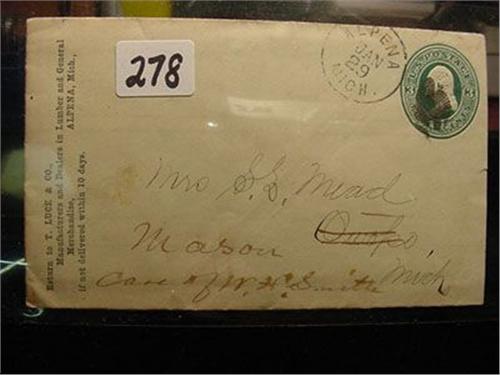 Return to T. LUCE & CO.,
Manufacturers and Dealers in Lumber and General
Merchandise, ALPENA, Mich.,
if not delivered within 10 days.
278
ALPENA
JAN
29
MICH.
U.S. POSTAGE
3 3
CENTS
Mrs S. S. Mead
Mason
Mich
Care of W. H. Smith